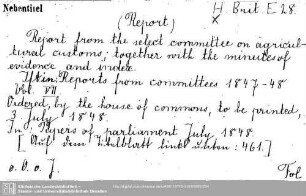 Nebentitel
H Brit. E 28.
x
(Report)
Report from the select committee on agricul-
tural customs; together with the minutes of
evidence and index.
If in: Reports from committees 1847-48
Vol. VII
Ordered, by the house of commons, to be printed,
3 July 1848.
In: Papers of parliament July 1848.
[Auf dem Schutzblatt links unten: 461.]
o. O. o. J.
Fol.